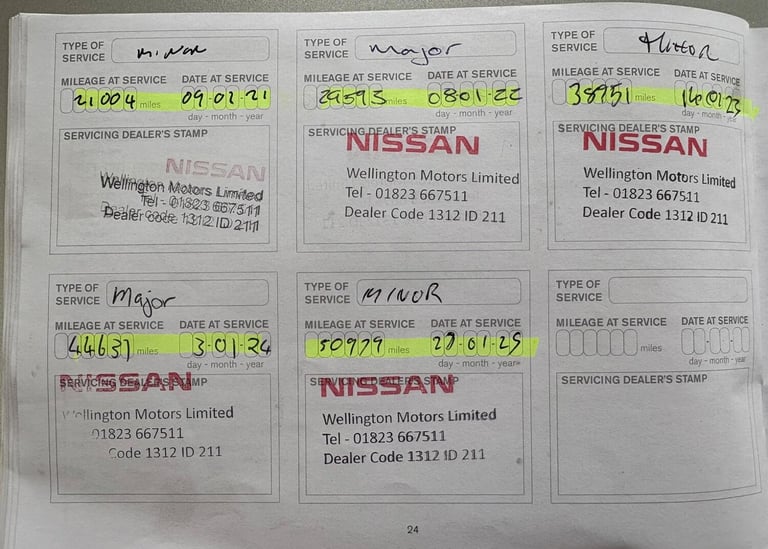 TYPE OF SERVICE Minor
MILEAGE AT SERVICE DATE AT SERVICE
21004 miles 09-01-21
day - month - year
SERVICING DEALER'S STAMP
NISSAN
Wellington Motors Limited
Tel - 01823 667511
Dealer code 1312 ID 211
TYPE OF SERVICE Major
MILEAGE AT SERVICE DATE AT SERVICE
29593 miles 08-01-22
day - month - year
SERVICING DEALER'S STAMP
NISSAN
Wellington Motors Limited
Tel - 01823 667511
Dealer Code 1312 ID 211
TYPE OF SERVICE
MILEAGE AT SERVICE DATE AT SERVICE
38951 miles 16-01-23
day - month - year
SERVICING DEALER'S STAMP
NISSAN
Wellington Motors Limited
Tel - 01823 667511
Dealer Code 1312 ID 211
TYPE OF SERVICE Major
MILEAGE AT SERVICE DATE AT SERVICE
44631 miles 3-01-24
day - month - year
SERVICING DEALER'S STAMP
NISSAN
Wellington Motors Limited
01823 667511
Code 1312 ID 211
TYPE OF SERVICE MINOR
MILEAGE AT SERVICE DATE AT SERVICE
50979 miles -01-25
day - month - year
SERVICING DEALER'S STAMP
NISSAN
Wellington Motors Limited
Tel - 01823 667511
Dealer Code 1312 ID 211
TYPE OF SERVICE
MILEAGE AT SERVICE DATE AT SERVICE
miles
day - month - year
SERVICING DEALER'S STAMP
24